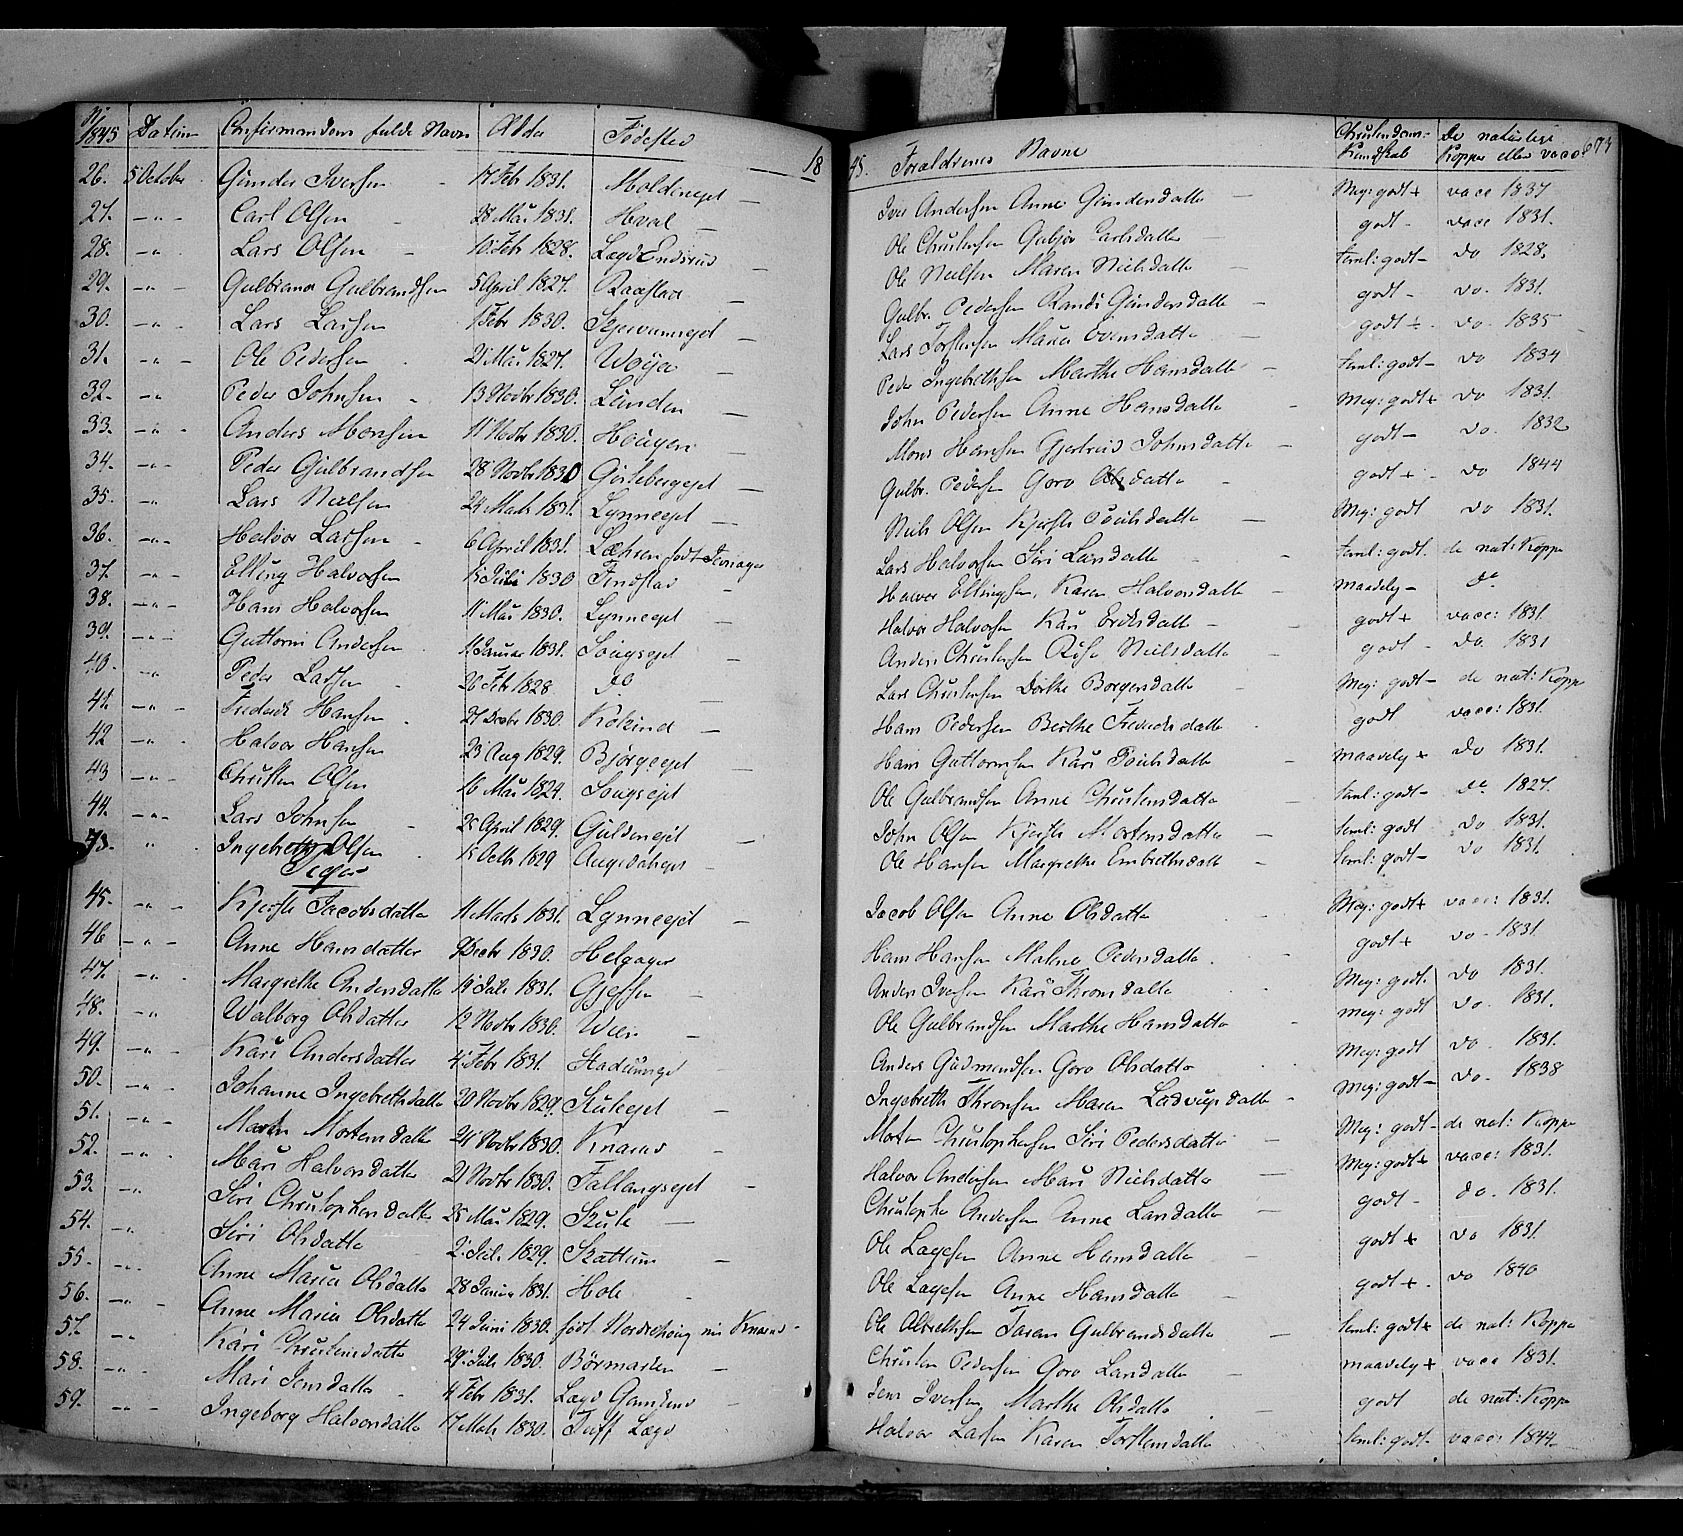 1845 Datum Confirmandens fulde Navn Alder Fødested 18
26. 5 October Gunder Iversen 17 Febr 1831. Moldeneyet
27. –"– Carl Olsen 28 Mai 1831. Hval
28. –"– Lars Olsen 10 Febr 1828. Lægd Enderud
29. –"– Gulbrand Gulbrandsen 5 April 1827. Raastad
30. –"– Lars Larsen 1 Febr 1830.
31. –"– Ole Pedersen 21 Mai 1827. Woya
32. –"– Peder Johnsen 13 Novbr 1830. Lunden
33. –"– Anders Monsen 11 Novbr 1830. Hougen
34. –"– Peder Gulbrandsen 28 Novbr 1830
35. –"– Lars Nielsen 24 Marts 1831. Lynneeyet
36. –"– Halvor Larsen 6 April 1831. født Jevnager
37. –"– Elling Halvorsen 15 Juli 1830 Findstad
38. –"– Hans Halvorsen 11 Mai 1830. Lynneeyet
39. –"– Guttorm Andersen Januar 1831. Sougseyet
40. –"– Peder Larsen 26 Febr 1828 do
41. –"– Frederik Hansen 27 Decbr 1830.
42 –"– Halvor Hansen 23 Aug 1829. Bjørgeeyet
43 –"– Christen Olsen 16 Mai 1829. Sougseyet
44. –"– Lars Johnsen 25 April 1829. Guldeneyet
" Ingebreth Olsen 15 Octbr 1829
Piger
45. –"– Kjersti Jacobsdatter 11 Marts 1831. Lynneeyet
46 –"– Anne Hansdatter 9 Decbr 1830. Helgager
47. –"– Margrethe Andersdatter 14 Juli 1831. Gjessen
48. –"– Walborg Olsdatter 12 Novbr 1830. Wien
49. –"– Kari Andersdatter 4 Febr 1831. Hadeunge
50. –"– Johanne Ingebrethsdatter 20 Novbr 1829. Stuleeyet
51. –"– Mortensdatter 24 Novbr 1830. Knarud
52. –"– Mari Halvorsdatter 21 Novbr 1830. Fallangseyet
53. –"– Siri Christophersdatter 25 Mai 1829. Skule
54. –"– Siri Olsdatter 2 Juli 1829. Skattum
55. –"– Anne Maria Olsdatter 28 Januar 1831. Hole
56. –"– Anne Maria Olsdatter 24 Juni 1830. født Nordrehoug nu Knarud
57. –"– Kari Christensdatter 29 Juli 1830. Børmarken
58. –"– Mari Jensdatter 4 Febr 1831. Lægd
59. –"– Ingeborg Halvorsdatter 17 Marts 1830. Tuff Lægd
45. Forældrenes Navne Christendoms Kundskab De naturlige Kopper eller vacc 673
Iver Andersen Anne Gundersdatter Meg: godt + vacc 1837
Ole Christensen Gubjør Carlsdatter godt – vacc 1831.
Ole Nielsen Maren Nielsdatter teml: godt – do 1828.
Gulbr. Pedersen Randi Gundersdatter godt – do. 1831.
Lars Torstensen Maria Evensdatter godt + do. 1835
Peder Ingebrethsen Marthe Hansdatter teml: godt – do 1834
John Pedersen Anne Hansdatter Meg: godt + do 1831.
Mons Hansen Gjertrud Johnsdatter godt – do. 1832
Gulbr. Pedersen Goro Olsdatter godt + do 1844
Niels Olsen Kjersti Poulsdatter Meg: godt do 1831.
Lars Halvorsen Siri Larsdatter teml: godt. de nat: Kopper
Halvor Ellingsen, Karen Halvorsdatter maadelig – do
Halvor Halvorsen Kari Eriksdatter godt + vacc: 1831.
Anders Christensen Nielsdatter godt – do 1831
Lars Christensen Dorthe Borgersdatter Meg: godt – de nat: Kopper
Hans Pedersen Berthe Frederiksdatter godt vacc: 1831.
Hans Guttormsen Kari Poulsdatter maadelig + do 1831.
Ole Gulbrandsen Anne Christensdatter teml: godt – do. 1827.
John Olsen Kjersti Mortensdatter teml: godt do 1831.
Ole Hansen Margrethe Embrethsdatter teml: godt – do 1831.
Jacob Olsen Anne Olsdatter Meg: godt + vacc: 1831.
Hans Hansen Malene Pedersdatter godt + do – 1831.
Anders Iversen Kari Thronsdatter Meg: godt. do 1831.
Ole Gulbrandsen Marthe Hansdatter meg: godt do. 1831.
Anders Gudmundsen Goro Olsdatter Meg: godt do. 1831.
Ingebreth Thronsen Maren Ladvigsdatter Meg: godt – do. 1838
Morten Christophersen Siri Pedersdatter Meg: godt – de nat: Kopper
Halvor Andersen Mari Nielsdatter Meg: godt + vacc: 1831.
Christopher Andersen Anne Larsdatter godt – do. 1831.
Ole Lagesen Anne Hansdatter godt + do 1831.
Ole Lagesen Anne Hansdatter godt + do 1840
Ole Albrethsen Taran Gulbrandsdatter teml: godt + de nat: Kopper
Christen Pedersen Goro Larsdatter maadelig + vacc 1831.
Jens Iversen Marthe Olsdatter godt de nat: Kopper
Halvor Larsen Karen Torstensdatter teml: godt – vacc: 1844